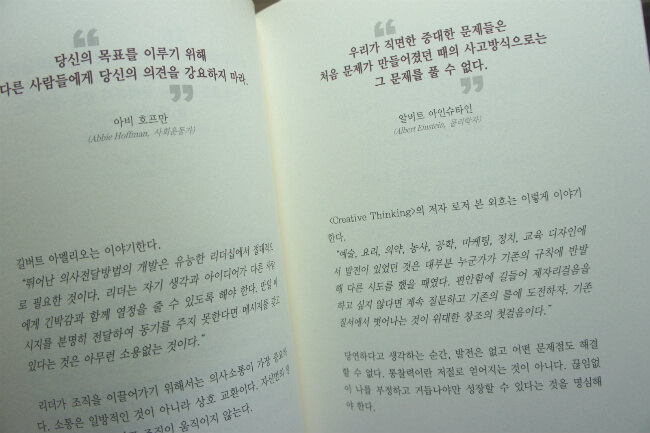 “
당신의 목표를 이루기 위해
다른 사람들에게 당신의 의견을 강요하지 마라.
”
아비 호프만
(Abbie Hoffman, 사회운동가)
길버트 아멜리오는 이야기한다.
“뛰어난 의사전달방법의 개발은 유능한 리더십에서 절대적으
로 필요한 것이다. 리더는 자기 생각과 아이디어가 다른 사람들
에게 긴박감과 함께 열정을 줄 수 있도록 해야 한다. 만일 메
시지를 분명히 전달하여 동기를 주지 못한다면 메시지를 갖고
있다는 것은 아무런 소용없는 것이다.”
리더가 조직을 이끌어가기 위해서는 의사소통이 가장 중요하
다. 소통은 일방적인 것이 아니라 상호 교환이다. 자신만의
조직이 움직이지 않는다.
“
우리가 직면한 중대한 문제들은
처음 문제가 만들어졌던 때의 사고방식으로는
그 문제를 풀 수 없다.
”
알버트 아인슈타인
(Albert Einstein, 물리학자)
<Creative Thinking>의 저자 로저 본 외흐는 이렇게 이야기
한다.
“예술, 요리, 의약, 농사, 공학, 마케팅, 정치, 교육 디자인에
서 발전이 있었던 것은 대부분 누군가가 기존의 규칙에 반발
해 다른 시도를 했을 때였다. 편안함에 길들어 제자리걸음을
하고 싶지 않다면 계속 질문하고 기존의 룰에 도전하자. 기존
질서에서 벗어나는 것이 위대한 창조의 첫걸음이다.”
당연하다고 생각하는 순간, 발전은 없고 어떤 문제점도 해결
할 수 없다. 통찰력이란 저절로 얻어지는 것이 아니다. 끊임없
이 나를 부정하고 거듭나야만 성장할 수 있다는 것을 명심해
야 한다.